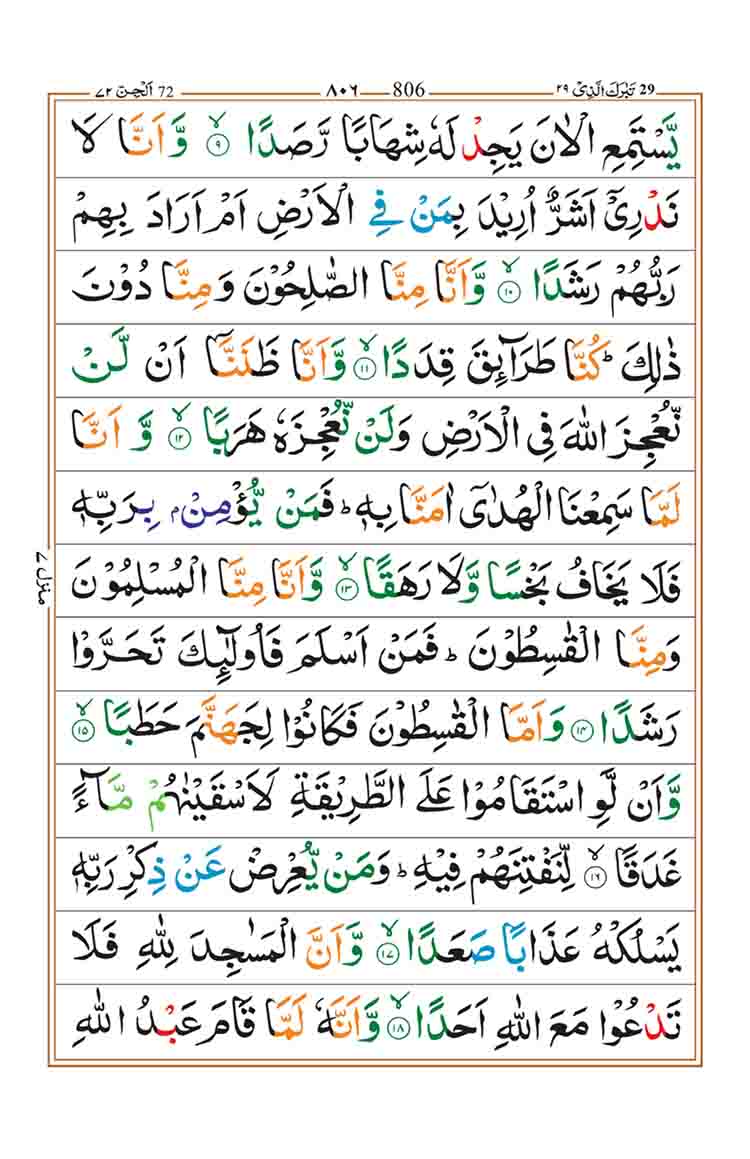 29 تَبٰرَكَ الَّذِىْ ٢٩ 806 ٨٠٦ 72 اَلْجِنّ ٧٢
يَّسْتَمِعِ الْاٰنَ يَجِدْ لَهٗ شِهَابًا رَّصَدًا ۙ﴿۹﴾ وَّاَنَّا لَا
نَدْرِىْۤ اَشَرٌّ اُرِيْدَ بِمَنْ فِى الْاَرْضِ اَمْ اَرَادَ بِهِمْ
رَبُّهُمْ رَشَدًا ۙ﴿۱۰﴾ وَّاَنَّا مِنَّا الصّٰلِحُوْنَ وَمِنَّا دُوْنَ
ذٰلِكَ ؕ كُنَّا طَرَآئِقَ قِدَدًا ۙ﴿۱۱﴾ وَّاَنَّا ظَنَنَّاۤ اَنْ لَّنْ
نُّعْجِزَ اللّٰهَ فِى الْاَرْضِ وَلَنْ نُّعْجِزَهٗ هَرَبًا ۙ﴿۱۲﴾ وَّاَنَّا
لَمَّا سَمِعْنَا الْهُدٰٓى اٰمَنَّا بِهٖ ؕ فَمَنْ يُّؤْمِنْۢ بِرَبِّهٖ
فَلَا يَخَافُ بَخْسًا وَّلَا رَهَقًا ۙ﴿۱۳﴾ وَّاَنَّا مِنَّا الْمُسْلِمُوْنَ
وَمِنَّا الْقٰسِطُوْنَ ؕ فَمَنْ اَسْلَمَ فَاُولٰٓئِكَ تَحَرَّوْا
رَشَدًا ﴿۱۴﴾ وَاَمَّا الْقٰسِطُوْنَ فَكَانُوْا لِجَهَنَّمَ حَطَبًا ۙ﴿۱۵﴾
وَّاَنْ لَّوِ اسْتَقَامُوْا عَلَى الطَّرِيْقَةِ لَاَسْقَيْنٰهُمْ مَّآءً
غَدَقًا ۙ﴿۱۶﴾ لِّنَفْتِنَهُمْ فِيْهِ ؕ وَمَنْ يُّعْرِضْ عَنْ ذِكْرِ رَبِّهٖ
يَسْلُكْهُ عَذَابًا صَعَدًا ۙ﴿۱۷﴾ وَّاَنَّ الْمَسٰجِدَ لِلّٰهِ فَلَا
تَدْعُوْا مَعَ اللّٰهِ اَحَدًا ۙ﴿۱۸﴾ وَّاَنَّهٗ لَمَّا قَامَ عَبْدُ اللّٰهِ
منزل ٧